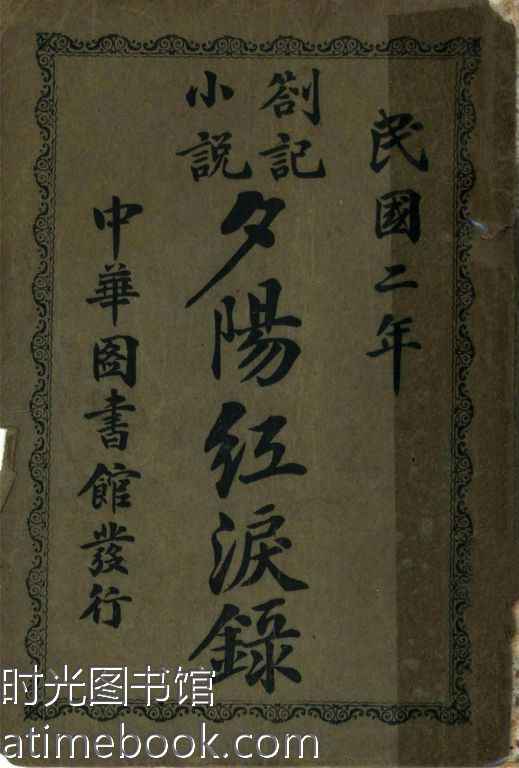 民國二年
劄記
小説
夕陽紅淚錄
中華圖書館發行
时光图书馆
atimebook.com